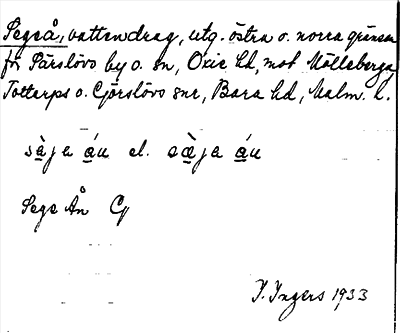 Segeå, vattendrag, utg. östra o. norra gränsen
för Särslövs by o. sn, Oxie hd, mot Mölleberga,
Tottarps o. Görslövs snr, Bara hd, Malm. l.
sàja áu el. sæ̀ja áu
Sege Ån Cf
I. Ingers 1933